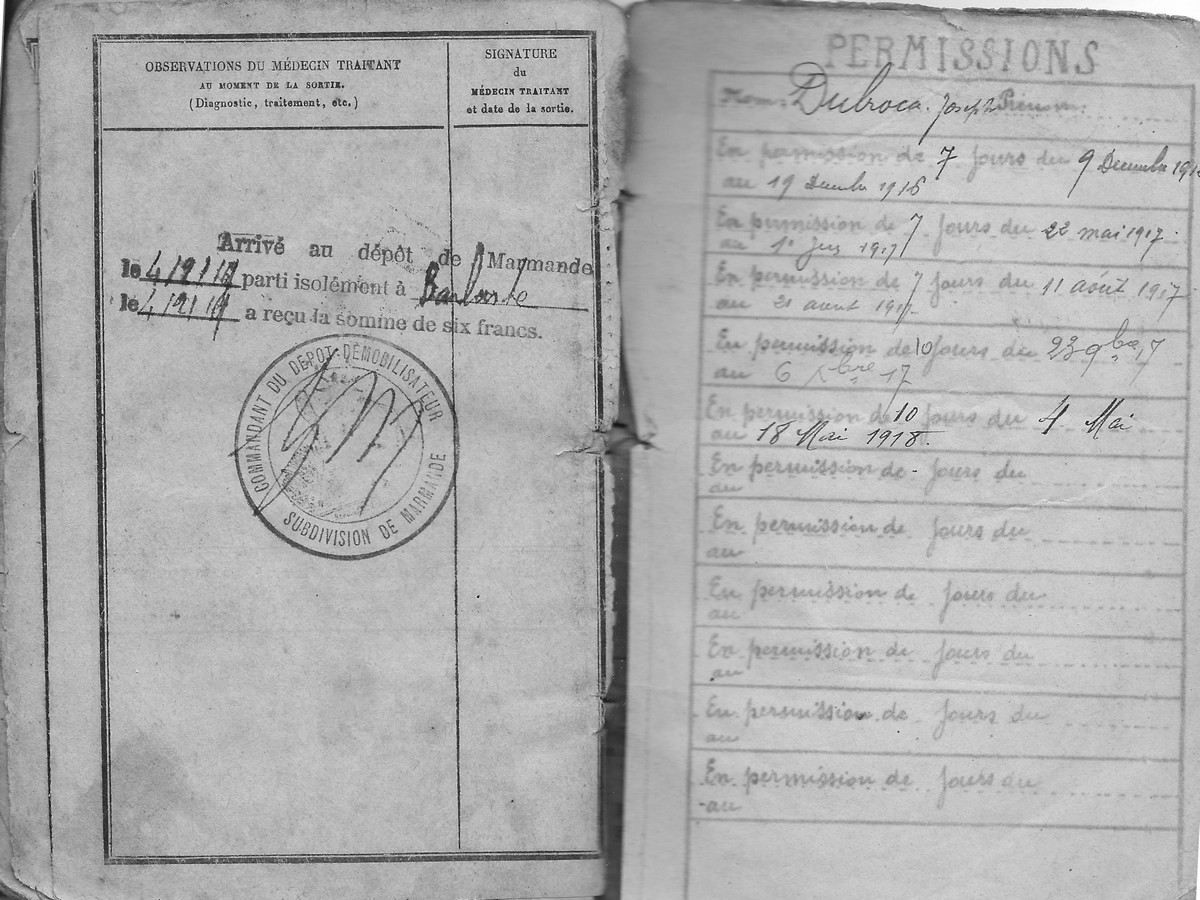 OBSERVATIONS DU MÉDECIN TRAITANT
AU MOMENT DE LA SORTIE.
(Diagnostic, traitement, etc.)
SIGNATURE
du
MÉDECIN TRAITANT
et date de la sortie.
Arrivé au dépôt de Marmande
le parti isolément à
le a reçu la somme de six francs.
COMMANDANT DU DÉPOT DÉMOBILISATEUR
SUBDIVISION DE MARMANDE
PERMISSIONS
Nom: Dubroca. Joseph Prénom:
En permission de 7 Jours du 9 Decembre
au 19 Decembre 1916
En permission de 7 Jours du 22 mai 1917.
au 1er 1917
En permission de 7 Jours du 11 août 1917
au 21 aout 1917
En permission de 10 Jours du 23 9bre 17
au 6 Xbre 17
En permission de 10 Jours du 4 Mai
au 18 Mai 1918.
En permission de Jours du
au
En permission de Jours du
au
En permission de Jours du
au
En permission de Jours du
au
En permission de Jours du
au
En permission de Jours du
au